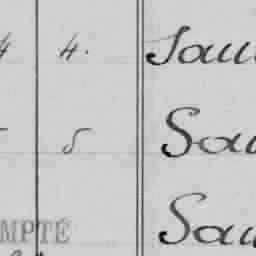 4 4. Sau
5 Sau
MPTÉ Sau